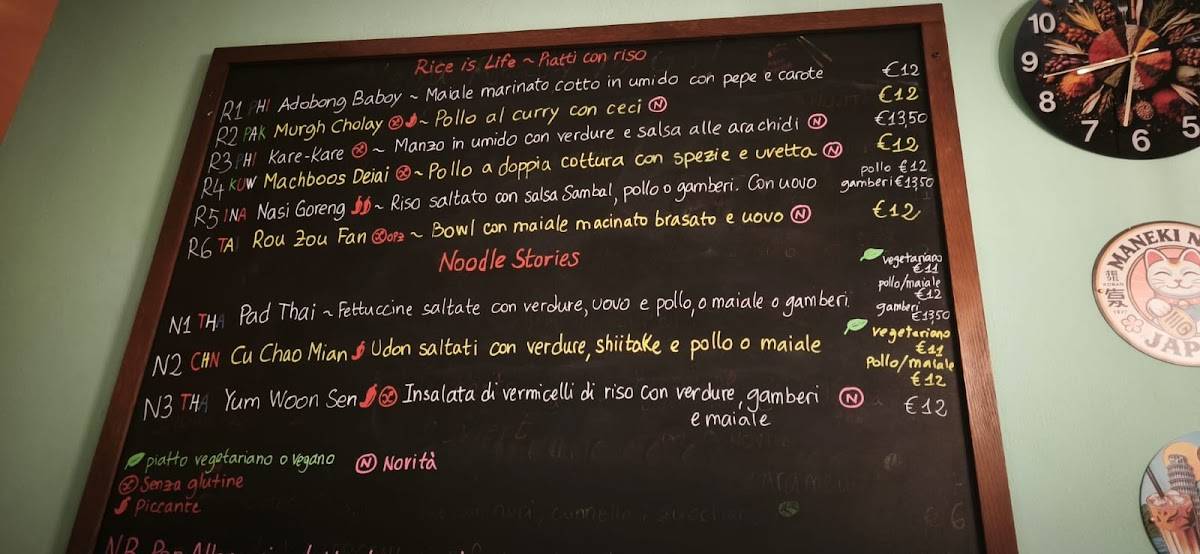 Rice is Life ~ Piatti con riso
R1 PHI Adobong Baboy ~ Maiale marinato cotto in umido con pepe e carote €12
R2 PAK Murgh Cholay ~ Pollo al curry con ceci N €12
R3 PHI Kare-Kare ~ Manzo in umido con verdure e salsa alle arachidi N €13,50
R4 KUW Machboos Deiai ~ Pollo a doppia cottura con spezie e uvetta N €12
R5 INA Nasi Goreng ~ Riso saltato con salsa Sambal, pollo o gamberi. Con uovo pollo €12
gamberi €13,50
R6 TAI Rou Zou Fan OPZ ~ Bowl con maiale macinato brasato e uovo N €12
Noodle Stories
vegetariano
€11
pollo/maiale
€12
N1 THA Pad Thai ~ Fettuccine saltate con verdure, uovo e pollo, o maiale o gamberi gamberi
€13,50
vegetariano
€11
N2 CHN Cu Chao Mian Udon saltati con verdure, shiitake e pollo o maiale pollo/maiale
€12
N3 THA Yum Woon Sen Insalata di vermicelli di riso con verdure, gamberi N €12
e maiale
piatto vegetariano o vegano N Novità
Senza glutine
Piccante
10
9
8
7
6
5
MANEKI N
KOBAN
JAP